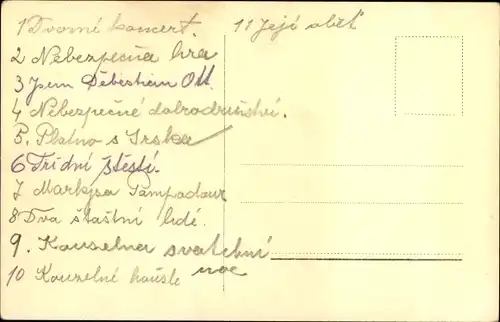 1 Dvorní koncert.
2 Nebezpečna hra
3 Jsem Šebestian Ott
4 Nebezpečné dobrodružství.
5. Platno s Irska
6 Tři dní štěstí.
7 Markysa Pampadour
8 Dva šťastní lidé.
9. Kouzelna svatební
noc
10 Kouzelné housle
11 Její oběť